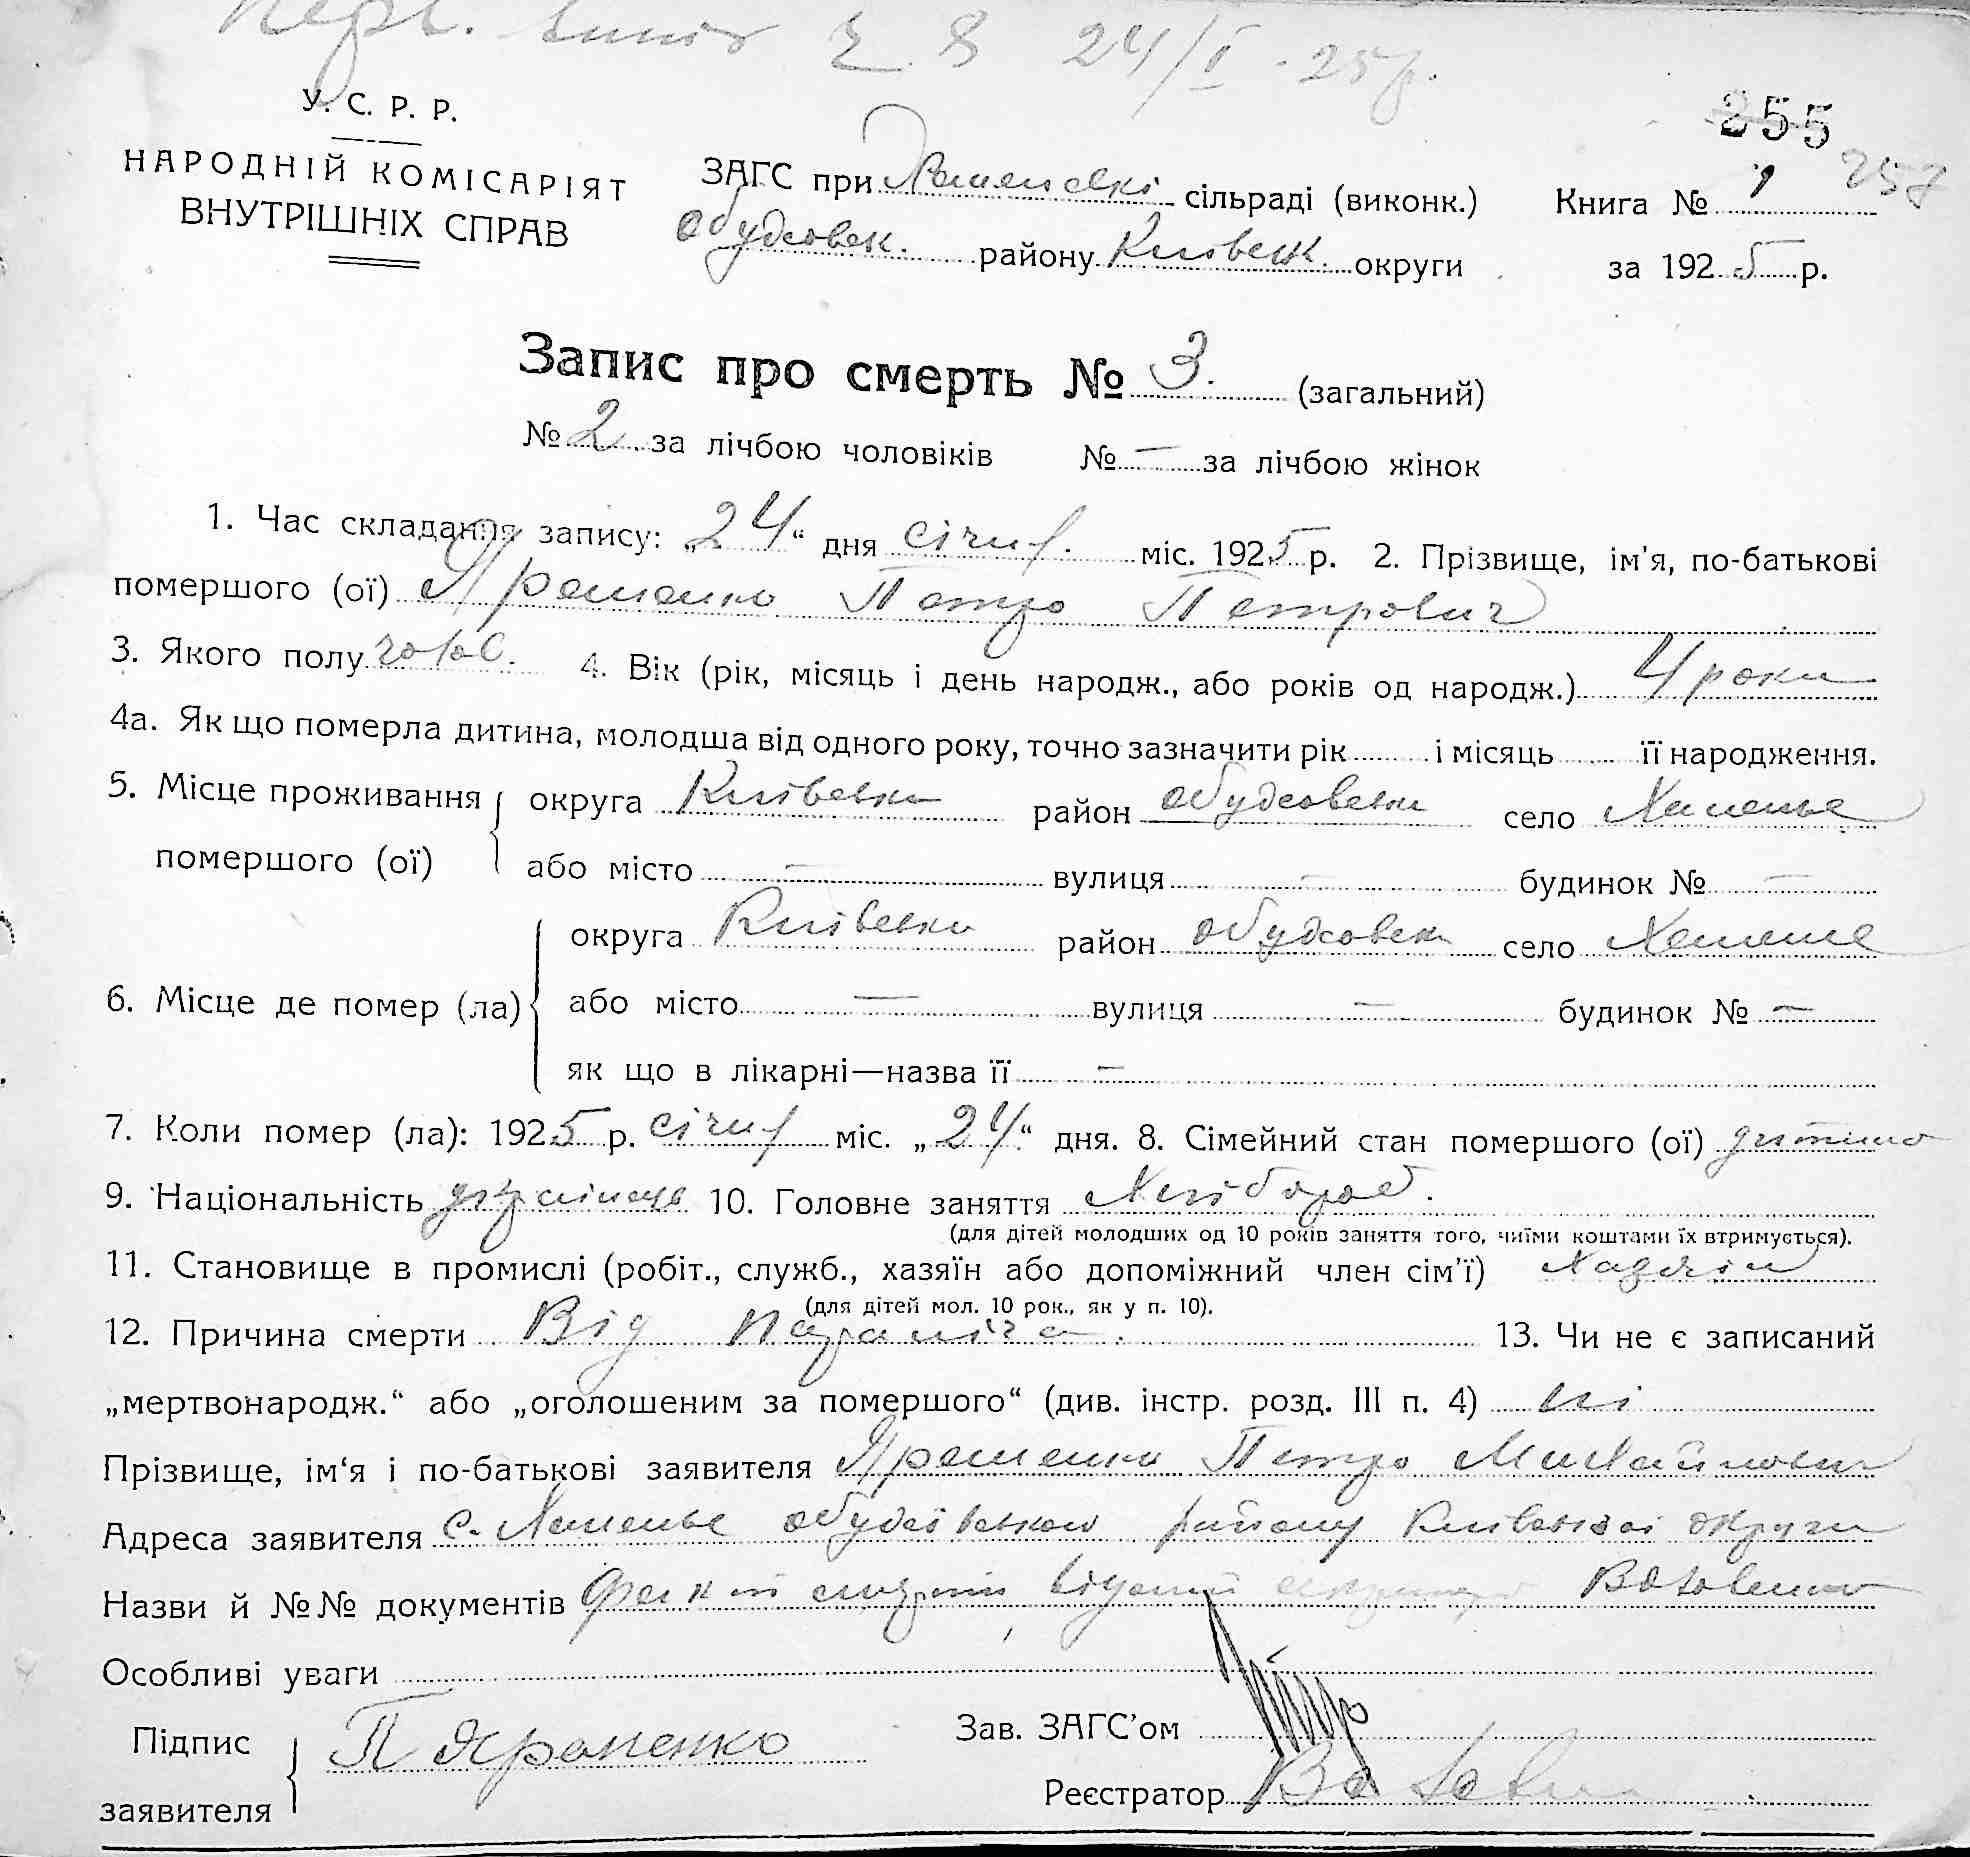 24/I - 25р.
У. С. Р. Р.
255
НАРОДНІЙ КОМІСАРІЯТ
ВНУТРІШНІХ СПРАВ
257
ЗАГС при сільраді (виконк.) Книга № 1
району Київськ. округи за 1925 р.
Запис про смерть № 3. (загальний)
№ 2 за лічбою чоловіків № — за лічбою жінок
1. Час складання запису: „24“ дня січня міс. 1925 р. 2. Прізвище, ім'я, по-батькові
помершого (ої) Яременко Петро Петрович
3. Якого полу чолов. 4. Вік (рік, місяць і день народж., або років од народж.) 4 роки
4а. Як що померла дитина, молодша від одного року, точно зазначити рік і місяць її народження.
5. Місце проживання округа Київська район село
помершого (ої) або місто — вулиця — будинок № —
округа Київська район село
6. Місце де помер (ла) або місто — вулиця — будинок № —
як що в лікарні—назва її —
7. Коли помер (ла): 1925 р. січня міс. „24“ дня. 8. Сімейний стан помершого (ої) дитина
9. Національність українець 10. Головне заняття Хлібороб.
(для дітей молодших од 10 років заняття того, чиїми коштами їх втримується).
11. Становище в промислі (робіт., служб., хазяїн або допоміжний член сім'ї) Хазяїн
(для дітей мол. 10 рок., як у п. 10).
12. Причина смерти Від параліча. 13. Чи не є записаний
„мертвонародж.“ або „оголошеним за помершого“ (див. інстр. розд. III п. 4) ні
Прізвище, ім‘я і по-батькові заявителя Яременко Петро Михайлович
Адреса заявителя с. району Київської округи
Назви й №№ документів
Особливі уваги
Підпис П Яременко Зав. ЗАГС’ом
заявителя Реєстратор